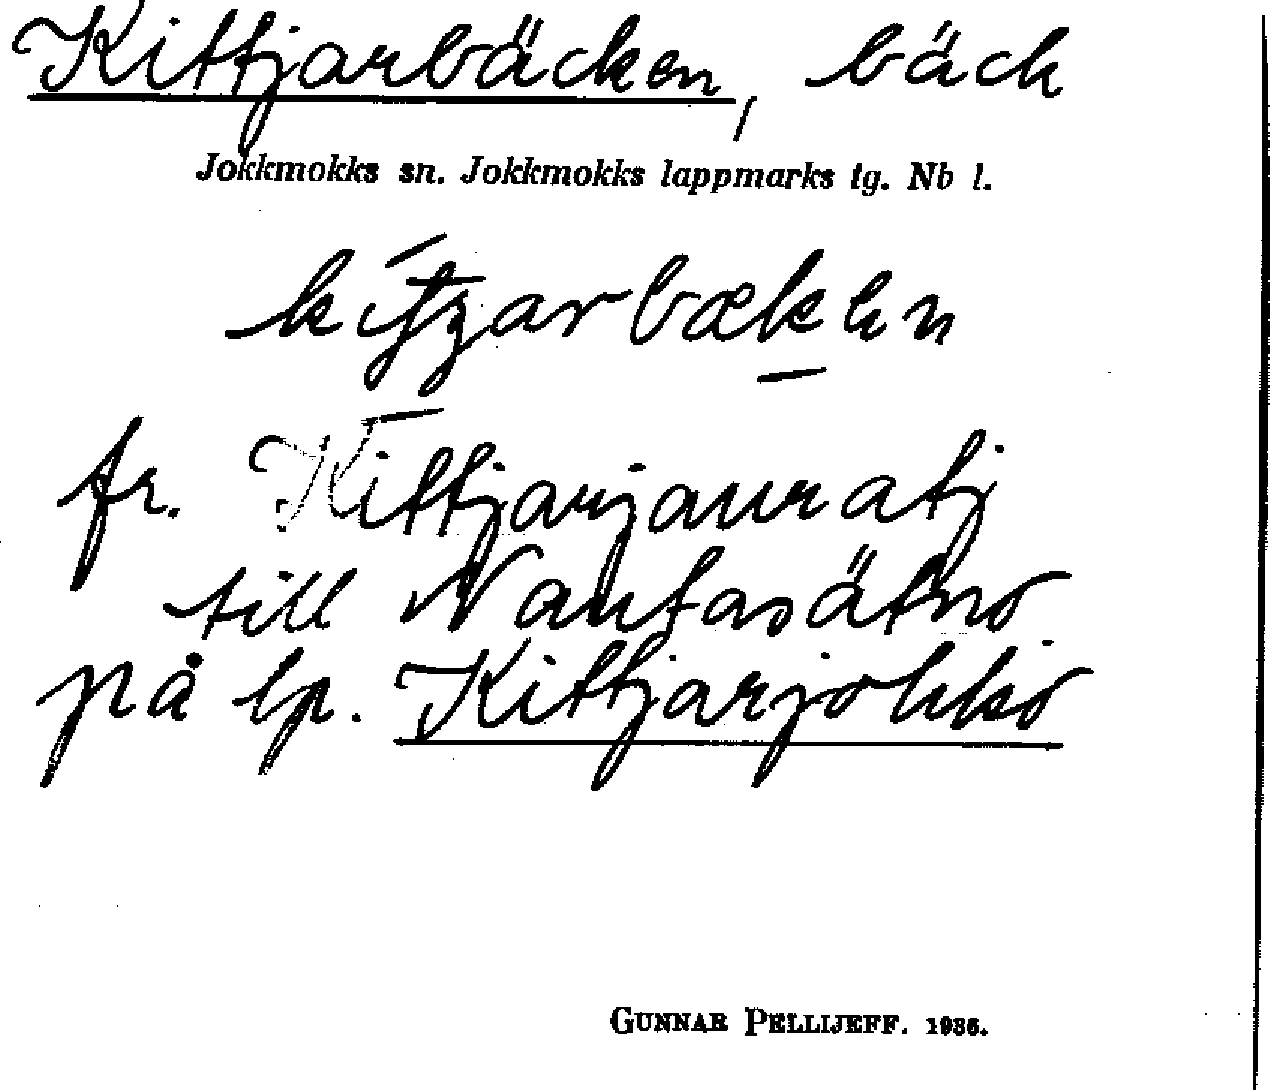 Kittjarbäcken, bäck
Jokkmokks sn. Jokkmokks lappmarks tg. Nb l.
fr. Kittjarjauratj
till Nautasätno
på lp. Kittjarjokko
GUNNAR PELLIJEFF. 1936.